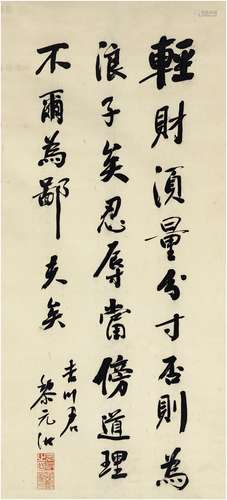 輕財須量分寸否則為
浪子矣忍辱當傍道理
不爾為鄙夫矣
吉川君
黎元洪